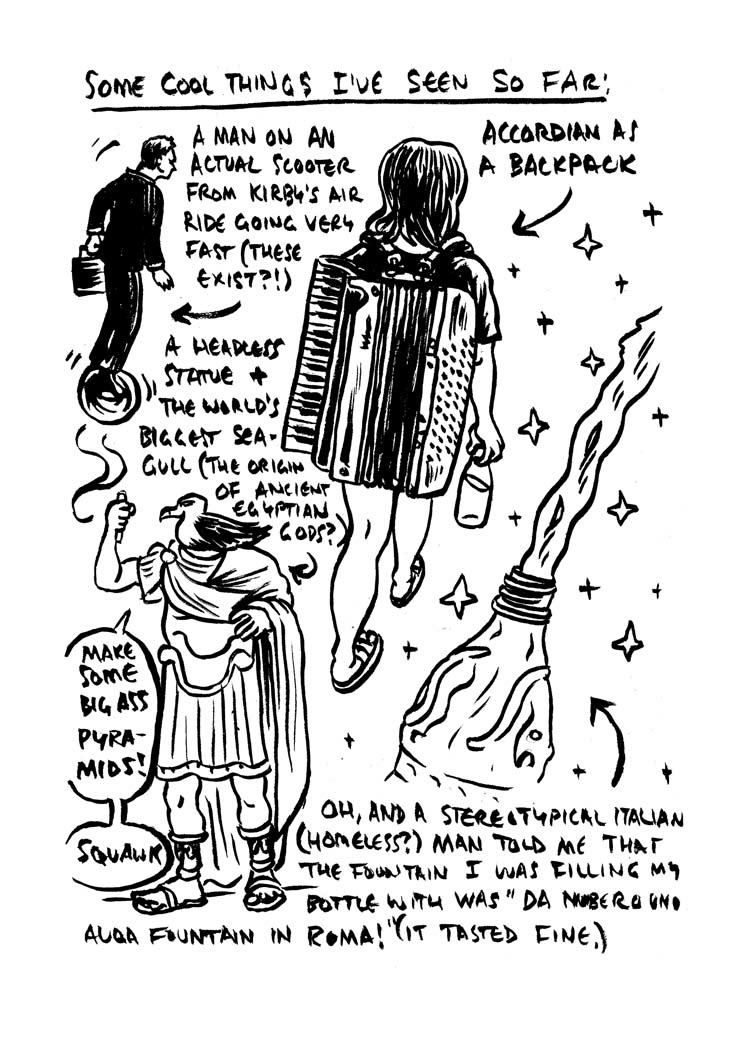 SOME COOL THINGS I'VE SEEN SO FAR:
A MAN ON AN
ACTUAL SCOOTER
FROM KIRBY'S AIR
RIDE GOING VERY
FAST (THESE
EXIST?!)
ACCORDIAN AS
A BACKPACK
A HEADLESS
STATUE +
THE WORLD'S
BIGGEST SEA-
GULL (THE ORIGIN
OF ANCIENT
EGYPTIAN
GODS?)
MAKE
SOME
BIG ASS
PYRA-
MIDS!
SQUAWK
OH, AND A STEREOTYPICAL ITALIAN
(HOMELESS?) MAN TOLD ME THAT
THE FOUNTAIN I WAS FILLING MY
BOTTLE WITH WAS "DA NUBERO UNO
AUQA FOUNTAIN IN ROMA!" (IT TASTED FINE.)